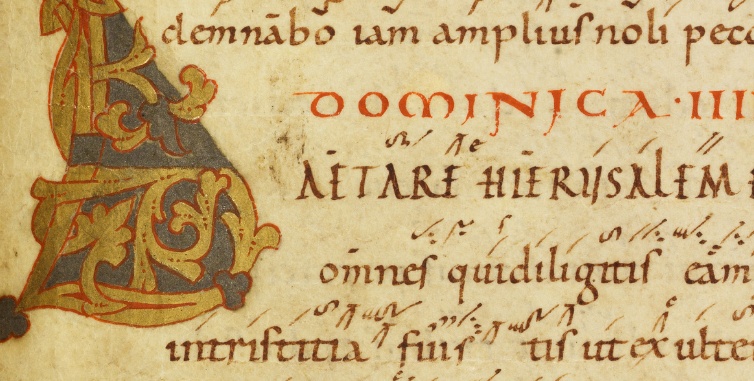 demnabō iam ampliuſ noli pecc
DOMINICA · IIII
LAETARE HIERUSALEM
omneſ qui diligitiſ eam
in triſtitia fuiſ tiſ ut exulte